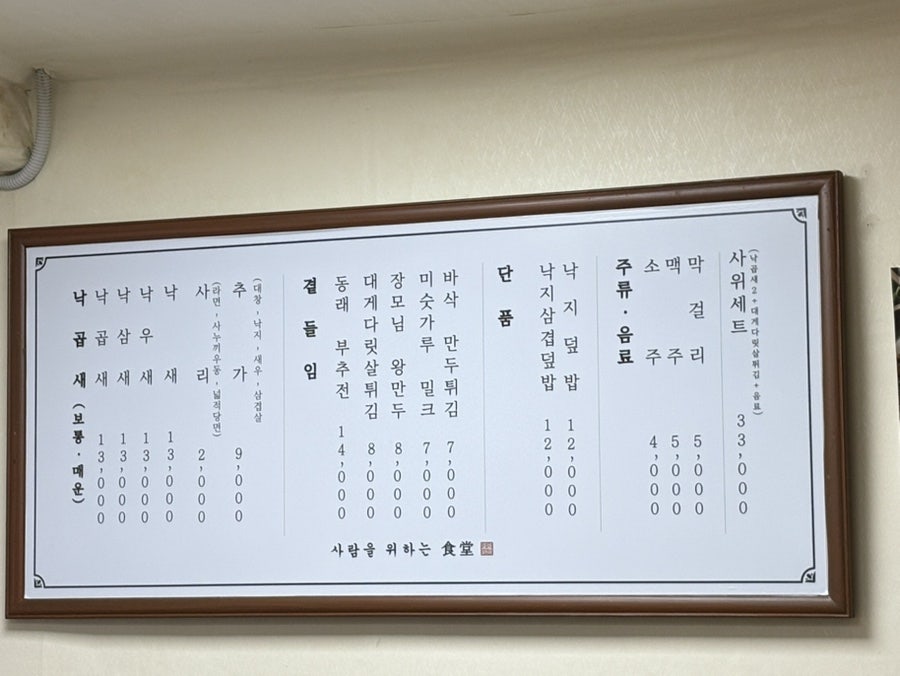 낙곱새 (보통·매운)
낙곱새 13,000
낙삼새 13,000
낙우새 13,000
낙새 13,000
사리 2,000
(라면,사누끼우동,넓적당면)
추가 9,000
(대창,낙지,새우,삼겹살
곁들임
동래 부추전 14,000
대게다릿살튀김 8,000
장모님 왕만두 8,000
미숫가루 밀크 7,000
바삭 만두튀김 7,000
단품
낙지삼겹덮밥 12,000
낙지덮밥 12,000
주류·음료
소주 4,000
맥주 5,000
막걸리 5,000
사위세트 33,000
(낙곱새2+대게다릿살튀김+음료)
사람을 위하는 食堂